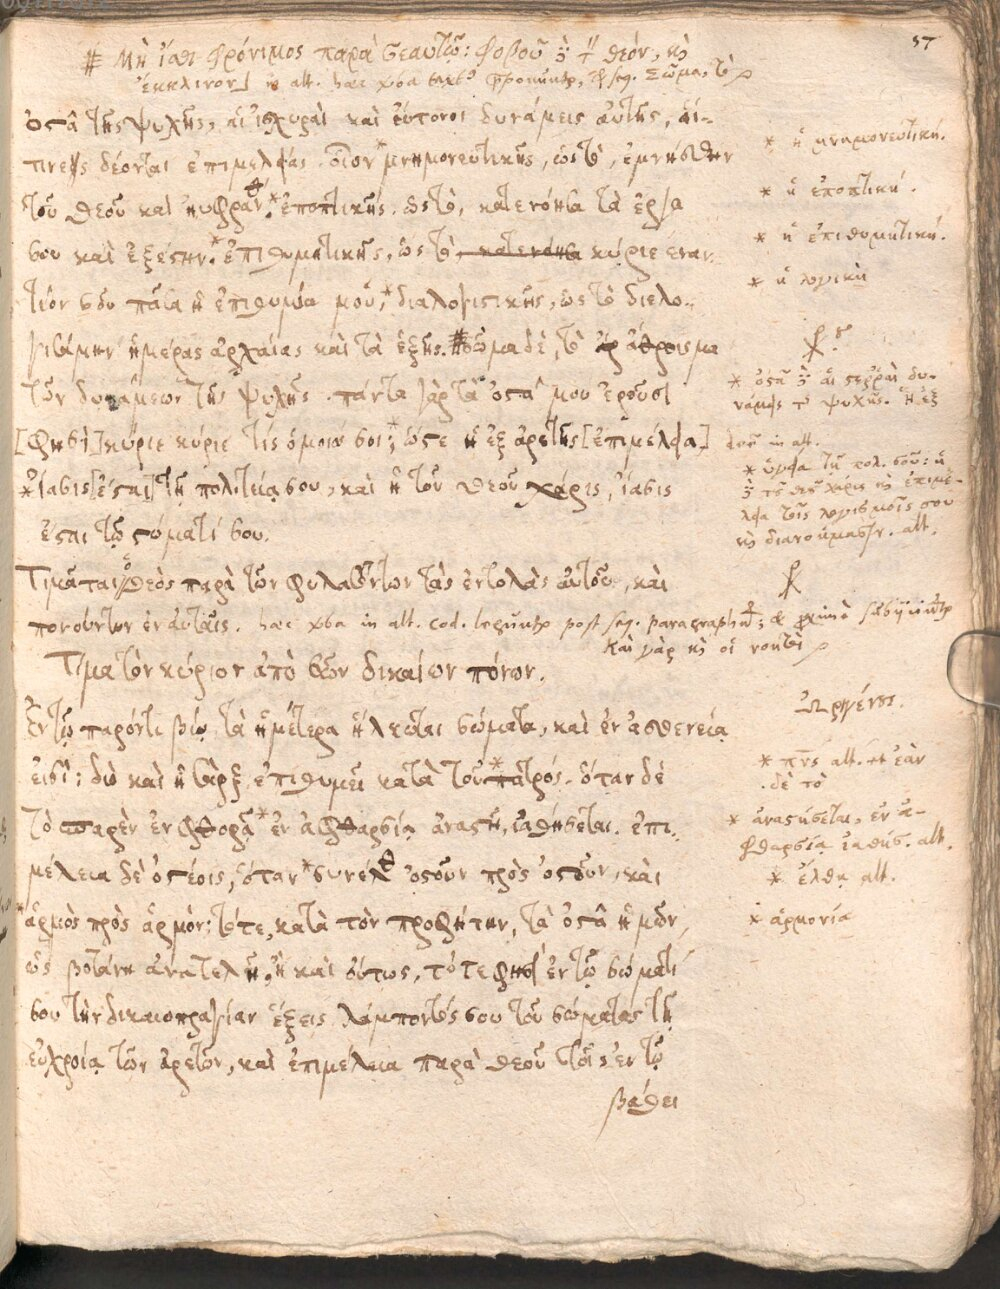 57
# Μὴ ἴσθι φρόνιμος παρὰ σεαυτῷ: φοβοῦ δὲ τὸν θεόν, καὶ
ἔκκλινον] in alt. haec verba phronuntur, sequ. Σῶμα, τὸ
ὀστᾶ τῆς ψυχῆς, αἱ ἰσχυραὶ καὶ εὔτονοι δυνάμεις αὐτῆς, αἵ-
τινες δέονται ἐπιμελείας. οἷον *μνημονευτικῆς, ὡς τὸ, ἐμνήσθην
τοῦ θεοῦ καὶ ηὐφράνθην. *ἐποπτικῆς. ὡς τὸ, κατενόησα τὰ ἔργα
σου καὶ ἐξέστην. *ἐπιθυμητικῆς, ὡς τὸ, κατενόησα κύριε εναν
τίον σου πᾶσα ἡ ἐπιθυμία μου, *διαλογιστικῆς, ὡς τὸ διελο-
γισάμην ἡμέρας ἀρχαίας καὶ τὰ ἑξῆς. # σῶμα δὲ, τὸ ἄθροισμα
τῶν δυνάμεων τῆς ψυχῆς. πάντα γὰρ τὰ ὀστᾶ μου ἐροῦσι
[φησὶ] κύριε κύριε τίς ὅμοιός σοι; *ὥστε ἡ ἐξ ἀρετῆς [ἐπιμέλεια]
*ἴασις [ἔσται] τῇ πολιτείᾳ σου, καὶ ἡ τοῦ θεοῦ χάρις, ἴασις
ἔσται τῷ σώματί σου.
Τιμᾶται ὁ θεὸς παρὰ τῶν φυλαττόντων τὰς ἐντολὰς αὐτοῦ, καὶ
πονούντων ἐν αὐταῖς. haec verba in alt. cod. leguntur post seq. paragraphum; & proxime subjiciuntur
καὶ γὰρ καὶ οἱ νοητοὶ
Τίμα τὸν κύριον ἀπὸ σῶν δικαίων πόνων.
Ἐν τῷ παρόντι βίῳ τὰ ἡμέτερα ἥλκωται σώματα, καὶ ἐν ἀσθενείᾳ
εἰσί; διὸ καὶ ἡ σὰρξ ἐπιθυμεῖ κατὰ τοῦ *πατρός. ὅταν δὲ
τὸ σπαρὲν ἐν φθορᾷ *ἐν ἀφθαρσίᾳ ἀναστῇ, ἰαθήσεται. ἐπι-
μέλεια δὲ ὀστέοις, ὅταν *συνέλθῃ ὀστοῦν πρὸς ὀστοῦν, καὶ
*ἁρμὸς πρὸς ἁρμόν; τότε, κατὰ τὸν προφήτην, τὰ ὀστᾶ ἡμῶν
ὡς βοτάνη ἀνατελεῖ, ἢ καὶ οὕτως. τότε φησὶ ἐν τῷ σώματί
σου τὴν δικαιοπραγίαν ἕξεις λάμποντός σου τοῦ σώματος τῇ
εὐχροίᾳ τῶν ἀρετῶν, καὶ ἐπιμέλεια παρὰ θεοῦ τοῖς ἐν τῷ
βάθει
* ἡ μνημονευτική.
* ἡ ἐποπτική.
* ἡ ἐπιθυμητική.
* ἡ λογικὴ
* ὀστᾶ δὲ αἱ στερραὶ δυ-
νάμεις τῆς ψυχῆς. ἡ ἐξ
in alt.
* ὑγεία τῇ πολ. σου: ἡ
δὲ τοῦ θεοῦ χάρις καὶ ἐπιμέ-
λεια τοῖς λογισμοῖς σου
καὶ διανοήμασιν. alt.
Ὠριγένης.
* πνς alt. et ἐὰν
δὲ τὸ
* ἀναστήσεται, ἐν ἀ-
φθαρσίᾳ ἰαθήσ. alt.
* ἔλθῃ alt.
* ἁρμονία